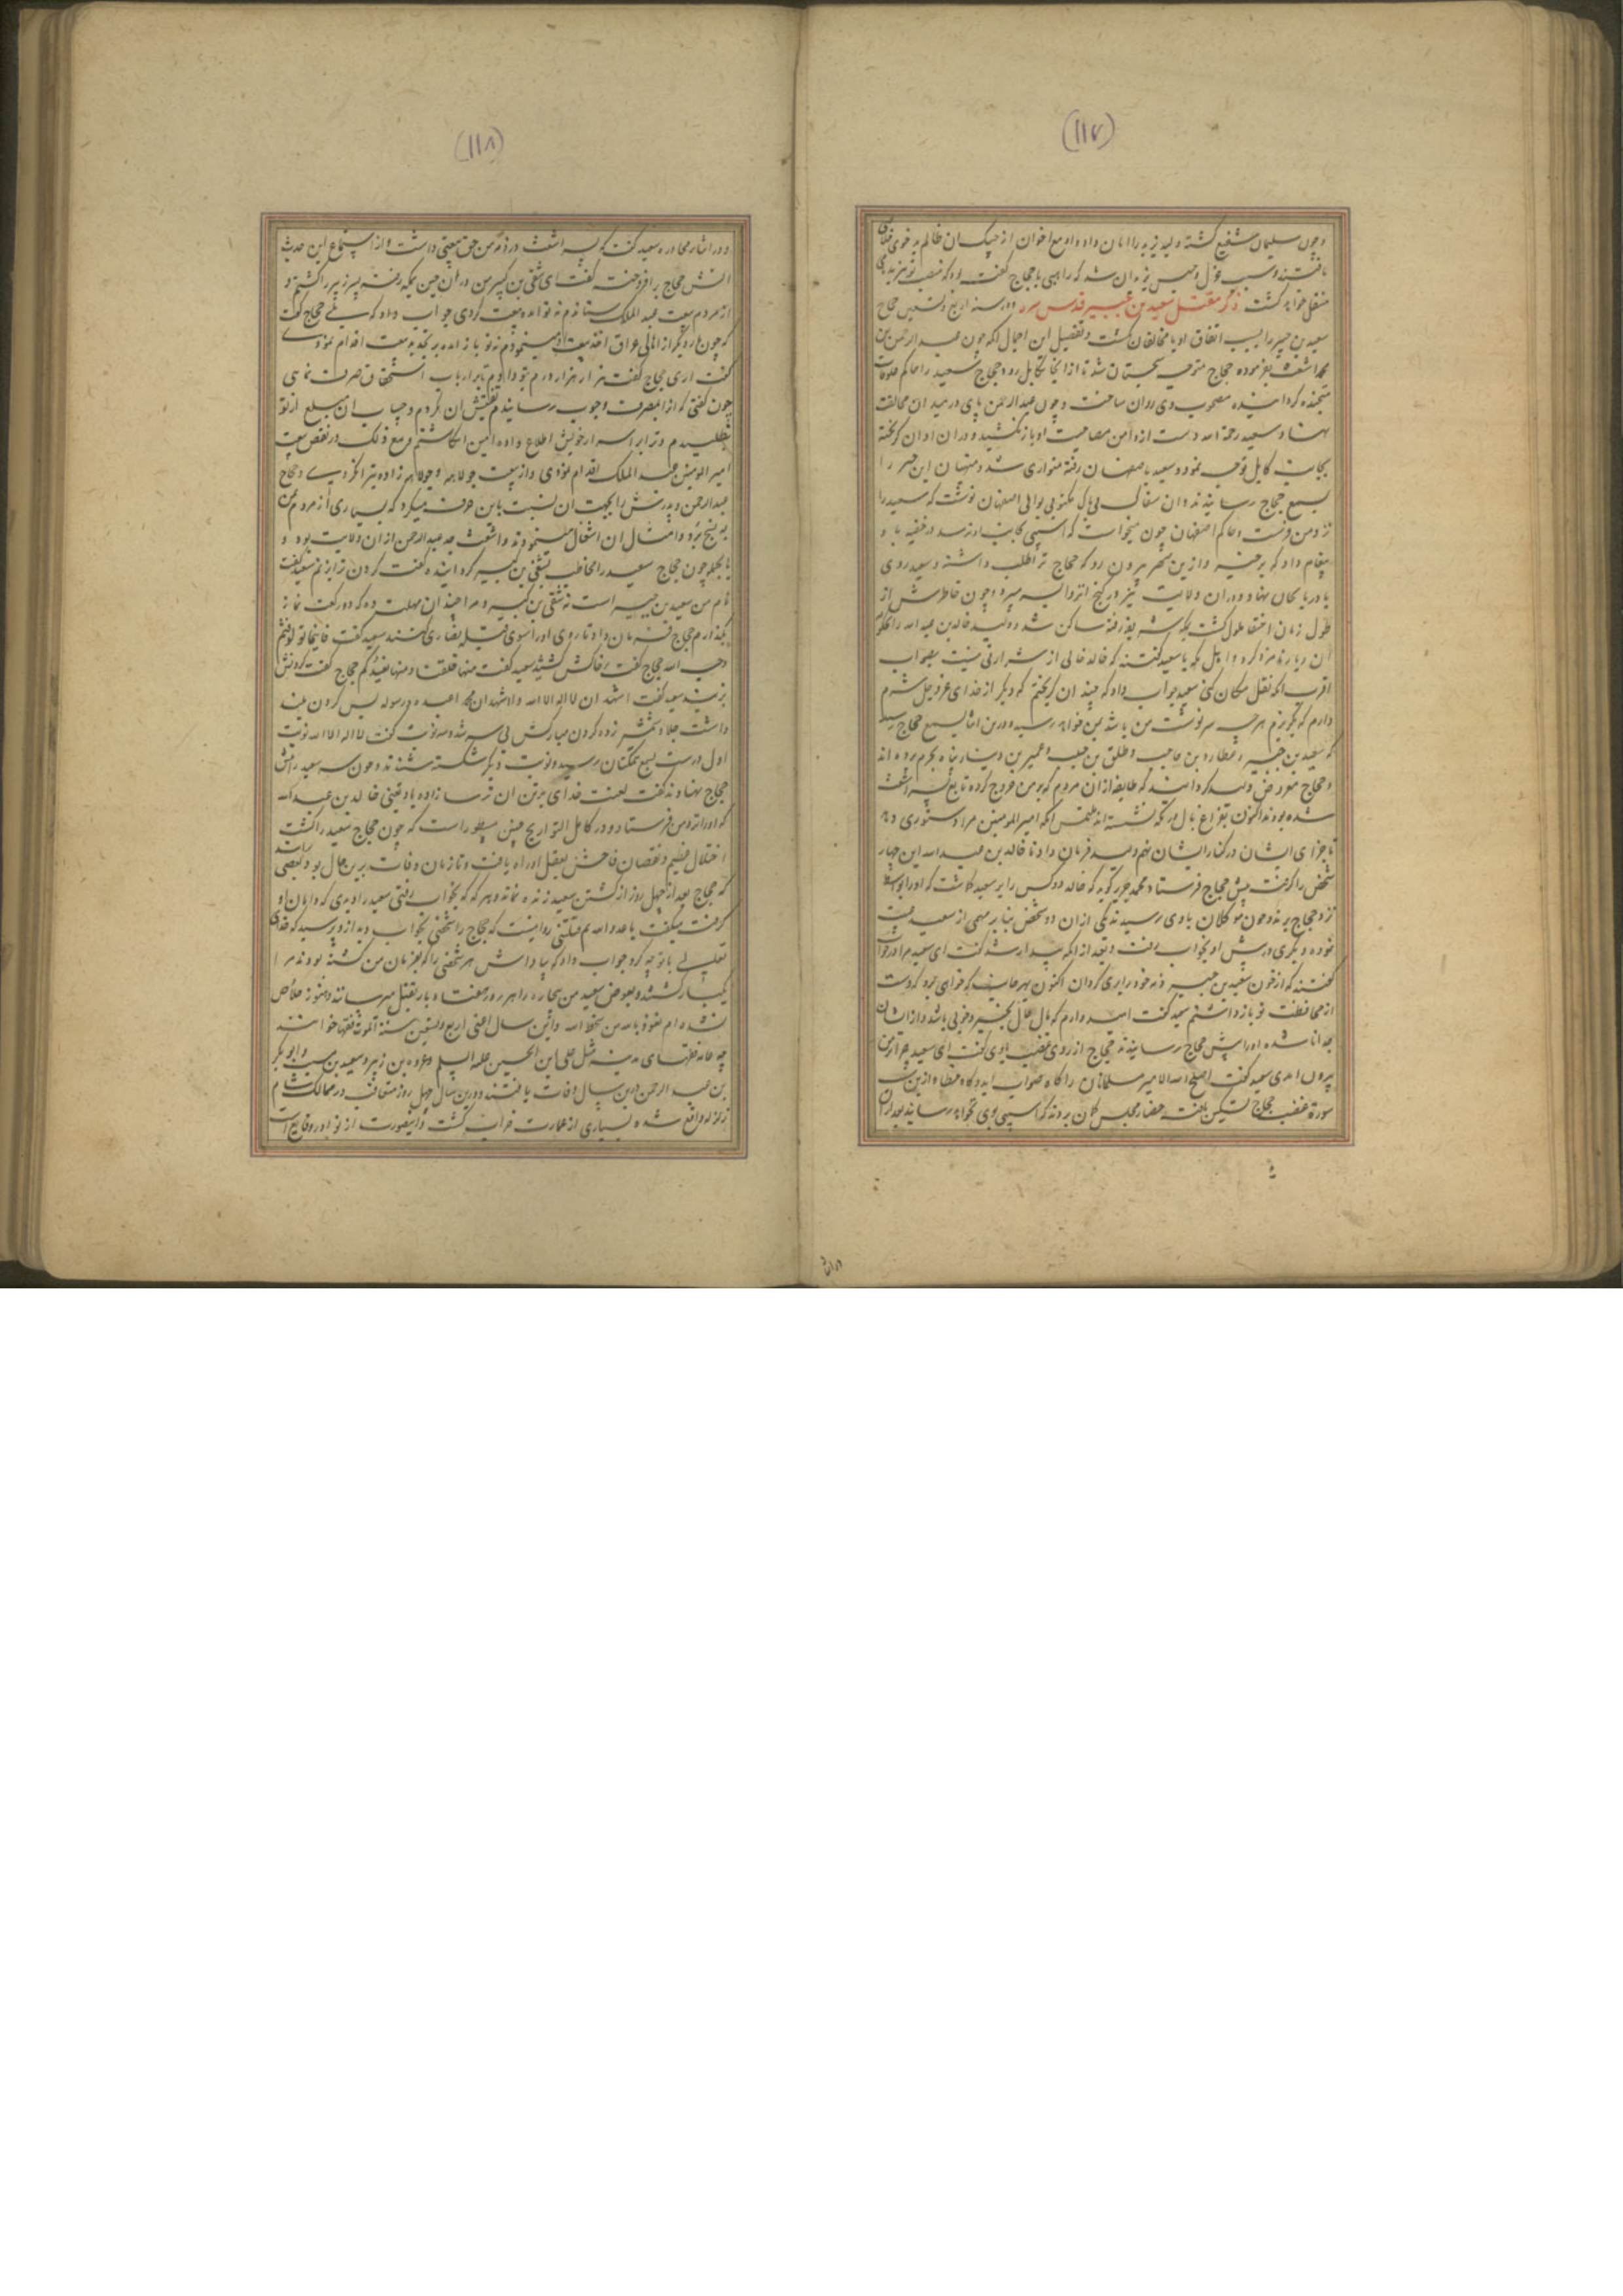 (١١٧)
و چون سلیمان شفیع گشته ولید یزید را امان داد و او مع اخوان از چنگ ان ظالم بدخوی خلاص
یافتند و سبب عزل و حبس یزید ان شد که راهبی با حجاج گفته بود که منصب تو بیزید
منتقل خواهد گشت ذکر مقتل سعید بن جبیر قدس سره در سنه اربع و تسعین حجاج
سعید بن جبیر را بسبب اتفاق او با مخالفان بکشت و تفصیل این اجمال انکه چون عبد الرحمن بن
محمد اشعث بفرموده حجاج متوجه سجستان شد تا از انجا بکابل رود حجاج سعید را حاکم علوفات
متجنده گردانیده مصحوب وی روان ساخت و چون عبد الرحمن پای در میدان مخالفت
نهاد سعید رحمة الله دست از دامن مصاحبت او باز نکشید و دران اوان که گریخته
بجانب کابل توجه نمود سعید باصفهان رفته متواری شد و منهیان این خبر را
بسمع حجاج رسانیدند و ان سفاک بی باک مکتوبی بوالی اصفهان نوشت که سعید را
نزد من فرست و حاکم اصفهان چون میخواست که اسیبی بجانب او نرسد در خفیه باو
پیغام داد که برخیز و ازین شهر بیرون رو که حجاج ترا طلب داشته و سعید روی
باذربایجان نهاد و دران ولایت نیز در کنج انزوا بسر میبرد و چون خاطرش از
طول زمان اختفا ملول گشت بمکه شریفه رفته ساکن شد و ولید خالد بن عبد الله را بحکومت
ان دیار نامزد کرد و اهل مکه با سعید گفتند که خالد خالی از شرارتی نیست بصواب
اقرب انکه نقل مکان کنی سعید جواب داد که چندان گریختم که دیگر از خدای عز و جل شرم
دارم که بگریزم هرچه سرنوشت من باشد بمن خواهد رسید و درین اثنا بسمع حجاج رسید
که سعید بن جبیر و عطا و مجاهد و طلق بن حبیب و عمر بن دینار پناه بحرم برده اند
و حجاج معروض ولید گردانید که طایفه از ان مردم که بر من خروج کرده تابع پسر اشعث
شده بودند اکنون بفراغ بال در مکه نشسته اند ملتمس انکه امیر المومنین مرا دستوری دهد
تا جزای ایشان در کنار ایشان نهم ولید فرمان داد تا خالد بن عبد الله این چهار
شخص را گرفته پیش حجاج فرستاد محمد جریر گوید که خالد دو کس را بر سعید گماشت که او را بواسط
نزد حجاج برند و چون موکلان بوادی رسیدند یکی از ان دو شخص بنابر مهمی از سعید غیبت
نموده و دیگری در پیش او بخواب رفت و بعد از انکه بیدار شد گفت ای سعید مرا در خواب
گفتند که از خون سعید بن جبیر ذمه خود را بری گردان اکنون بهر جانب که خواهی برو که دست
از محافظت تو باز داشتم سعید گفت امید دارم که مال حال بخیر و خوبی باشد و از ایشان
جدا نا شده او را پیش حجاج رسانیدند حجاج از روی غضب با وی گفت ای سعید چرا بر من
بیرون امدی سعید گفت اصلح الله الامیر مسلمانان را گاه صواب اید و گاه خطا و ازین سخن
سورة غضب حجاج تسکین یافت حضار مجلس گمان بردند که اسیبی بوی نخواهد رسانید بعد از ان
در اثنا
(١١٨)
و در اثناء محاوره سعید گفت که پسر اشعث در ذمه من حق بیعتی داشت و از استماع این حدیث
اتش حجاج بر افروخت گفت ای شقی بن کسیر من در ان حین بمکه رفته پسر زبیر را کشتم و
از مردم بیعت عبد الملک ستاندم نه تو امدی بیعت کردی جواب داد که بلی حجاج گفت
که چون بار دیگر از اهالی عراق اخذ بیعت مینمودم نه تو باز امده بر تجدید بیعت اقدام نمودی
گفت اری حجاج گفت نه هزار هزار درم بتو دادم تا بر ارباب استحقاق صرف نمایی
چون گفتی که از بمصرف وجوب رسانیدم تفتیش ان نکردم و حساب ان مبلغ از تو
نطلبیدم و ترا بر اسرار خویش اطلاع داده امین انگاشتم و مع ذلک در نقض بیعت
امیر المومنین عبد الملک اقدام نمودی و از بیعت جولاهه و جولاهه زاده تبرا نکردی و حجاج
عبد الرحمن و پدرش را بجهت ان نسبت باین حرفت میکرد که بسیاری از مردم یمن
به نسج برد و امثال ان اشتغال مینمودند و اشعث جد عبد الرحمن از ان ولایت بود و
بالجمله چون حجاج سعید را مخاطب بشقی بن کسیر گردانیده گفت گردن ترا بزنم سعید گفت
نام من سعید بن جبیر است نه شقی بن کسیر و مرا چندان مهلت ده که دو رکعت نماز
بگذارم حجاج فرمان داد تا روی او را بسوی قبله نصاری کنند سعید گفت فاینما تولوا فثم
وجه الله حجاج گفت بر خاکش کشید سعید گفت منها خلقناکم و فیها نعیدکم حجاج گفت گردنش
بزنید سعید گفت اشهد ان لا اله الا الله و اشهد ان محمدا عبده و رسوله پس گردن کشیده
داشت جلاد شمشیر زده گردن مبارکش بی سر شد و سه نوبت گفت لا اله الا الله نوبت
اول درست بسمع همکنان رسید و دو نوبت دیگر شکسته شنیدند و چون سر سعید را پیش
حجاج نهادند گفت لعنت خدای بر تن ان ترسا زاده باد یعنی خالد بن عبد الله
که او را نزد من فرستاد و در کامل التواریخ چنین مسطور است که چون حجاج سعید را کشت
اختلال عظیم و نقصان فاحش بعقل او راه یافت و تا زمان وفات برین حال بود بعضی
که حجاج بعد از چهل روز از کشتن سعید زنده نماند و هرگه که بخواب رفتی سعید را دیدی که دامان او
گرفته میگفت یا عدو الله لم قتلتنی روایتست که حجاج را شخصی بخواب دید از وی پرسید که خدای
تعالی با تو چه کرد جواب داد که بپاداش هر شخصی را که بفرمان من کشته بودند مرا
یکبار کشتند و بعوض سعید من بیچاره را هر روز هفتاد بار بقتل میرسانند و هنوز خلاص
نشده ام نعوذ بالله من سخط الله و این سال اعنی اربع و تسعین سنة الموت فقها خوانند
چه عامه فقهای مدینه مثل علی بن الحسین علیه السلم و عروه بن زبیر و سعید بن مسیب و ابو بکر
بن عبد الرحمن درین سال وفات یافتند و درین سال چهل روز متعاقب در ممالک شام
زلزله واقع شده بسیاری از عمارت خراب گشت و اینصورت از نوادر وقایع است